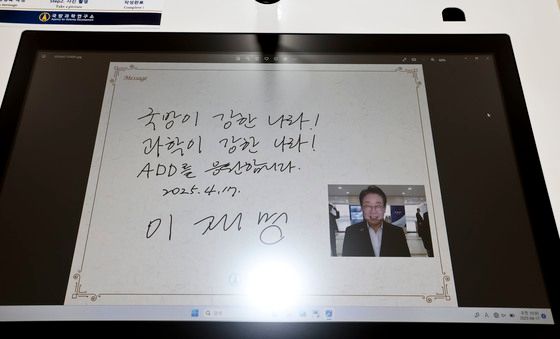 Step2. 사진 촬영
Take a picture
작성완료
Complete !
국방과학연구소
Agency for Defense Development
Message
국방이 강한 나라!
과학이 강한 나라!
ADD를 응원합니다.
2025. 4. 17.
이 재 명